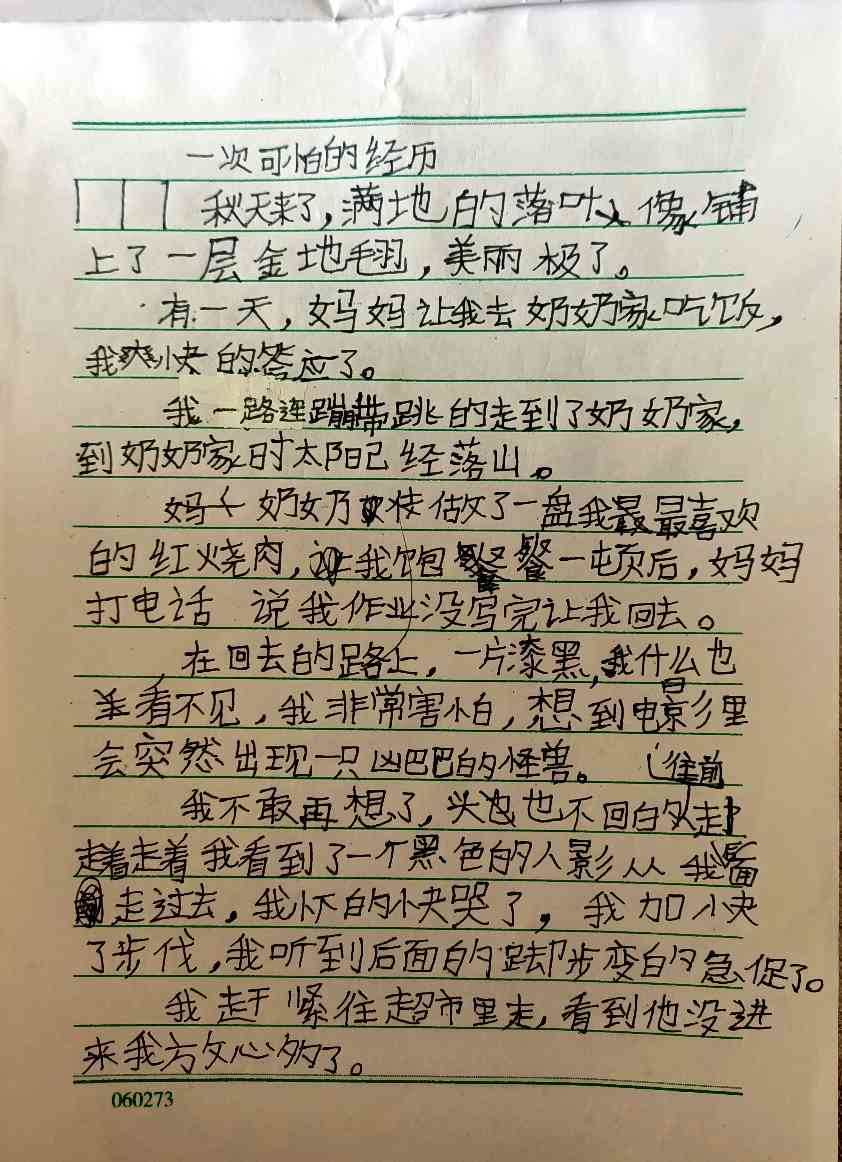 一次可怕的经历
秋天来了,满地的落叶像铺
上了一层金地毯,美丽极了。
有一天,妈妈让我去奶奶家吃饭,
我爽快的答应了。
我一路连蹦带跳的走到了奶奶家,
到奶奶家时太阳已经落山。
奶奶做了一盘我最喜欢
的红烧肉,让我饱餐一顿后,妈妈
打电话 说我作业没写完让我回去。
在回去的路上,一片漆黑,我什么也
看不见,我非常害怕,想到电影里
会突然出现一只凶巴巴的怪兽。
往前
我不敢再想了,头也不回的走
走着走着我看到了一个黑色的人影从我后面
走过去,我吓的快哭了,我加快
了步伐,我听到后面的脚步变的急促了。
我赶紧往超市里走,看到他没进
来我方文心多了。
060273